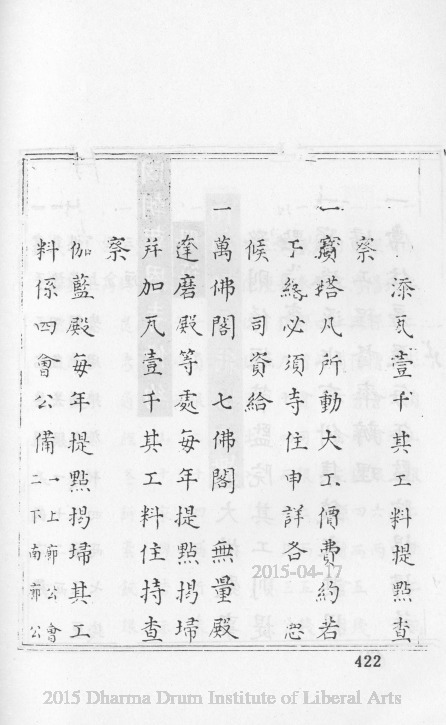 添瓦壹千其工料提點查
察
一寳塔凡所動大工價費約若
干緣必須寺住申詳各
候司資給
一萬佛閣 七佛閣 無量殿
達磨殿等處每年提點掲埽
并加瓦壹千其工料住持查
察
伽藍殿每年提點掲埽其工
料係四會公備一上郭公會
二下南郭公
2015-04-17
422
2015 Dharma Drum Institute of Liberal Arts